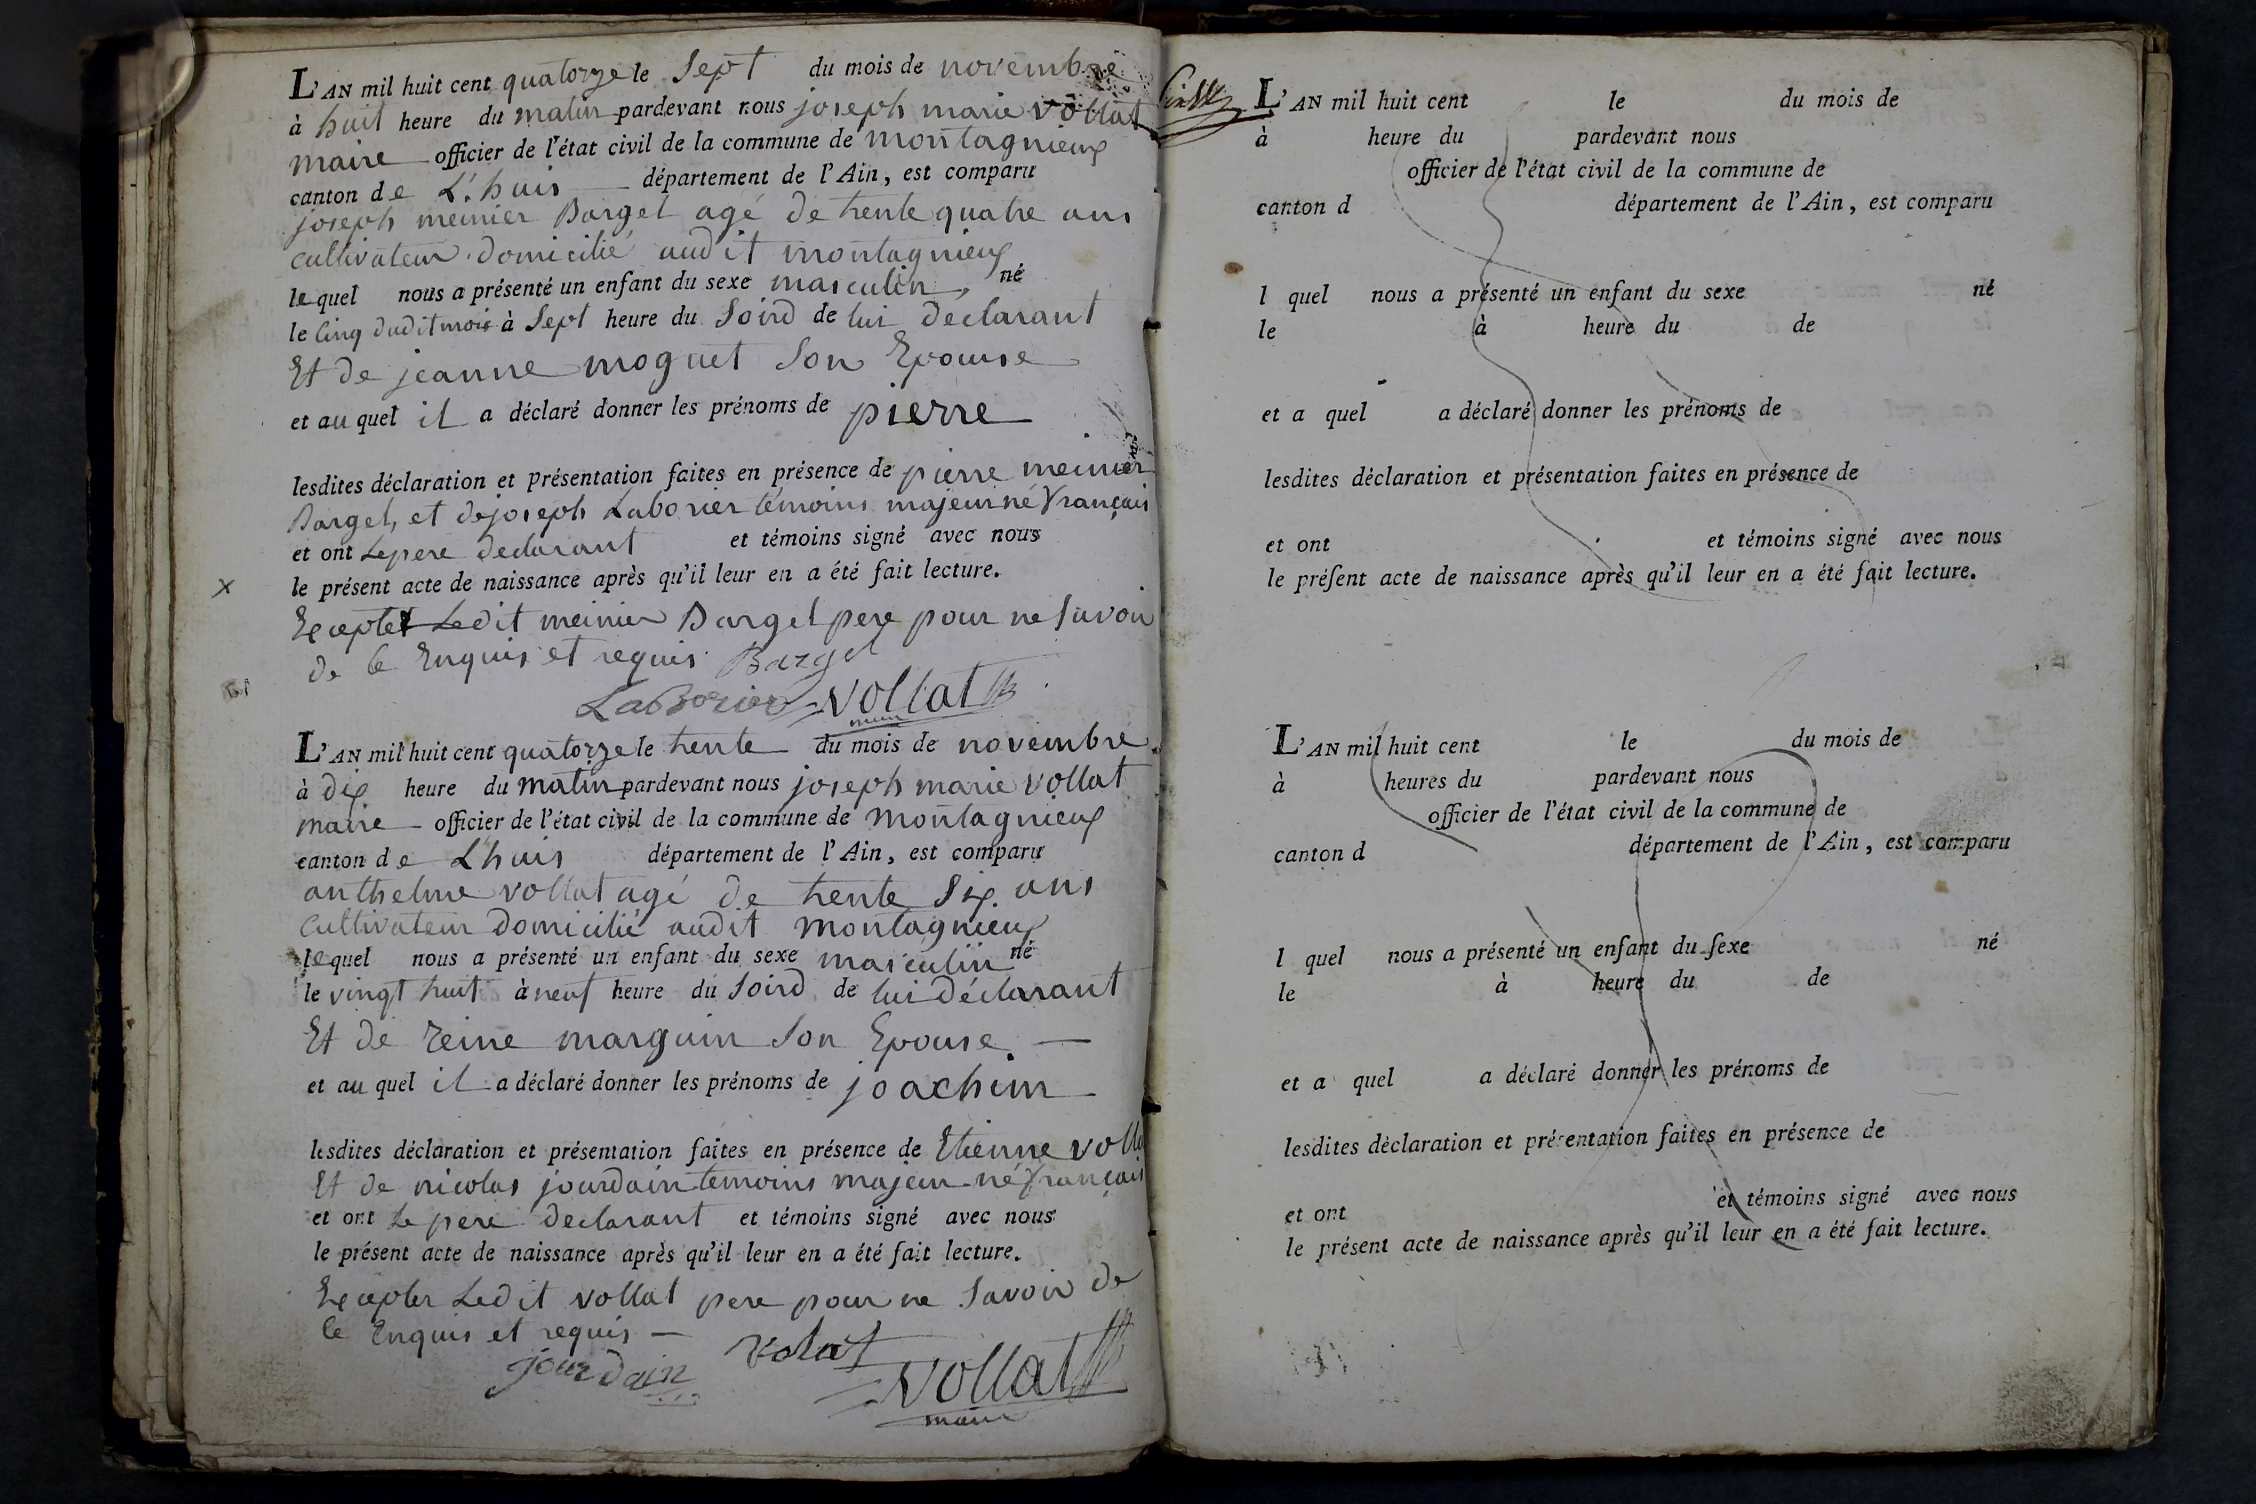 L'AN mil huit cent quatorze le Sept du mois de novembre
à huit heure du matin pardevant nous joseph marie vollat
maire officier de l'état civil de la commune de montagnieux
canton de L'huis département de l'Ain, est comparu
joseph meinier Bargel agé de trente quatre ans
cultivateur domicilié audit montagnieux
lequel nous a présenté un enfant du sexe masculin, né
le Cinq dudit mois à Sept heure du Soird de lui declarant
Et de jeanne moguet Son Epouse
et au quel il a déclaré donner les prénoms de pierre
lesdites déclaration et présentation faites en présence de pierre meinier
Bargel, et de joseph Laborier témoins majeur né français
et ont Le pere declarant et témoins signé avec nous
le présent acte de naissance après qu'il leur en a été fait lecture.
Excepter Ledit meinier Bargel pere pour ne Savoir
de ce Enquis et requis Bargel
LaBorier vollat
maire
L'AN mil huit cent quatorze le trente du mois de novembre
à dix heure du matin pardevant nous joseph marie vollat
maire officier de l'état civil de la commune de montagnieux
canton de L'huis département de l'Ain, est comparu
anthelme vollat agé de trente Six ans
cultivateur domicilié audit montagnieux
lequel nous a présenté un enfant du sexe masculin né
le vingt huit à neuf heure du Soird de lui déclarant
Et de reine marguin Son Epouse.
et au quel il a déclaré donner les prénoms de joachim
lesdites déclaration et présentation faites en présence de Etienne volla
Et de nicolas jourdain temoins majeur né français
et ont Le pere declarant et témoins signé avec nous
le présent acte de naissance après qu'il leur en a été fait lecture.
Excepter Ledit vollat pere pour ne Savoir de
ce Enquis et requis
jourdain volat vollat
maire
L'AN mil huit cent le du mois de
à heure du pardevant nous
officier de l'état civil de la commune de
canton d département de l'Ain, est comparu
l quel nous a présenté un enfant du sexe né
le à heure du de
et a quel a déclaré donner les prénoms de
lesdites déclaration et présentation faites en présence de
et ont et témoins signé avec nous
le préſent acte de naissance après qu'il leur en a été fait lecture.
L'AN mil huit cent le du mois de
à heures du pardevant nous
officier de l'état civil de la commune de
canton d département de l'Ain, est comparu
l quel nous a présenté un enfant du ſexe né
le à heure du de
et a quel a déclaré donner les prénoms de
lesdites déclaration et présentation faites en présence de
et ont et témoins signé avec nous
le présent acte de naissance après qu'il leur en a été fait lecture.